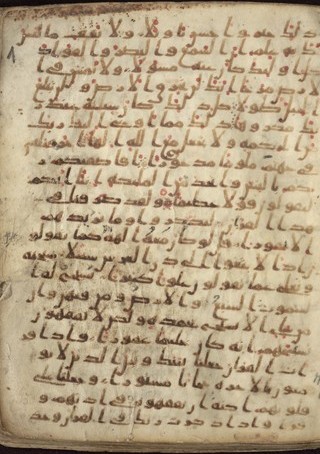 ذلك خير واحسن تاويلا ولا تقف ما ليس
لك به علم ان السمع والبصر والفواد
كل اولئك كان عنه مسولا ولا تمش في ا
لارض مرحا انك لن تخرق الارض ولن تبلغ
الجبال طولا كل ذلك كان سيئه عند ر
بك مكروها ذلك مما اوحى اليك ربك
من الحكمه ولا تجعل مع الله الها اخر فتلقى
في جهنم ملوما مدحورا افاصفكم ر
بكم بالبنين واتخذ من الملئكه انثا انكم
لتقولون قولا عظيما ولقد صرفنا في
هذا القران ليذكروا وما يزيدهم
الا نفورا قل لو كان معه الهه كما يقولو
ن اذا لابتغوا الى ذي العرش سبيلا سبحنه
وتعلى عما يقولون علوا كبيرا تسبح له ا
لسموت السبع والارض ومن فيهن وان
من شي الا يسبح بحمده ولكن لا تفقهون
تسبيحهم انه كان حليما غفورا واذا قر
ات القران جعلنا بينك وبين الذين لا يو
منون بالاخره حجابا مستورا وجعلنا على
قلوبهم اكنه ان يفقهوه وفي اذنهم و
قرا واذا ذكرت ربك في القران وحد